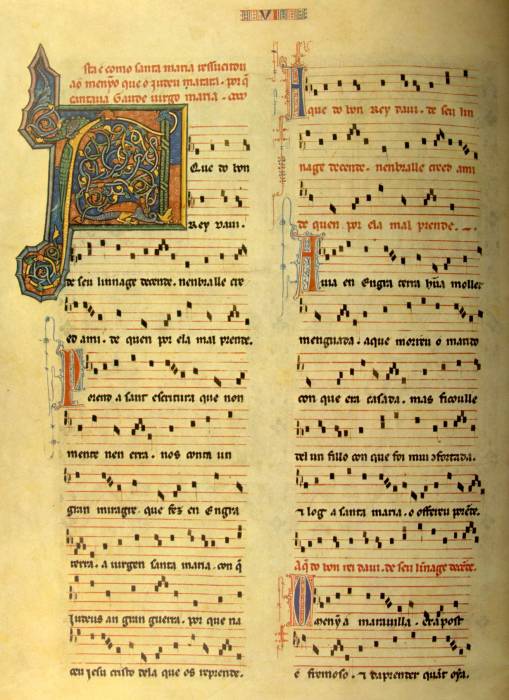 VI
sta é como santa maria ressucitou
ao menỹo que o iudeu matara. por q̃
cantaua Gaude uirgo maria.
Que do bon
Rey Daui.
de seu linnage decende. nenbralle cre
ed ami. de quen por ela mal prende.
Porend a sant escritura que non
mente nen erra. nos conta un
gran miragre. que fez en Engra
terra. a uirgen santa maria. con q̃
Judeus an gran guerra. por que na
ceu Jesu cristo dela que os reprende.
A que do bon Rey Daui. de seu lin
nage decende. nenbralle creed ami
de quen por ela mal prende.
Auia en Engra terra hũa moller
menguada. aque morreu o marido
con que era casada. mas ficoulle
del un fillo con que foi mui ↄfortada.
⁊ log a santa maria. o offereu porẽde.
Aq̃ do bon rei daui. de seu linage decẽde.
O menỹ a marauilla. er apost
e fremoso. ⁊ daprender quãt oya.